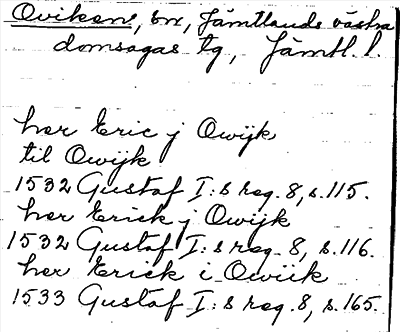 Ovikens, sn, Jämtlands västra
domsagas tg, Jämtl. l.
her Eric j Owijk
til Owijk
1532 Gustaf I:s reg. 8, s. 115.
her Erick j Owijk
1532 Gustaf I:s reg. 8, s. 116.
her Erick i Owiik
1533 Gustaf I:s reg. 8, s. 165.